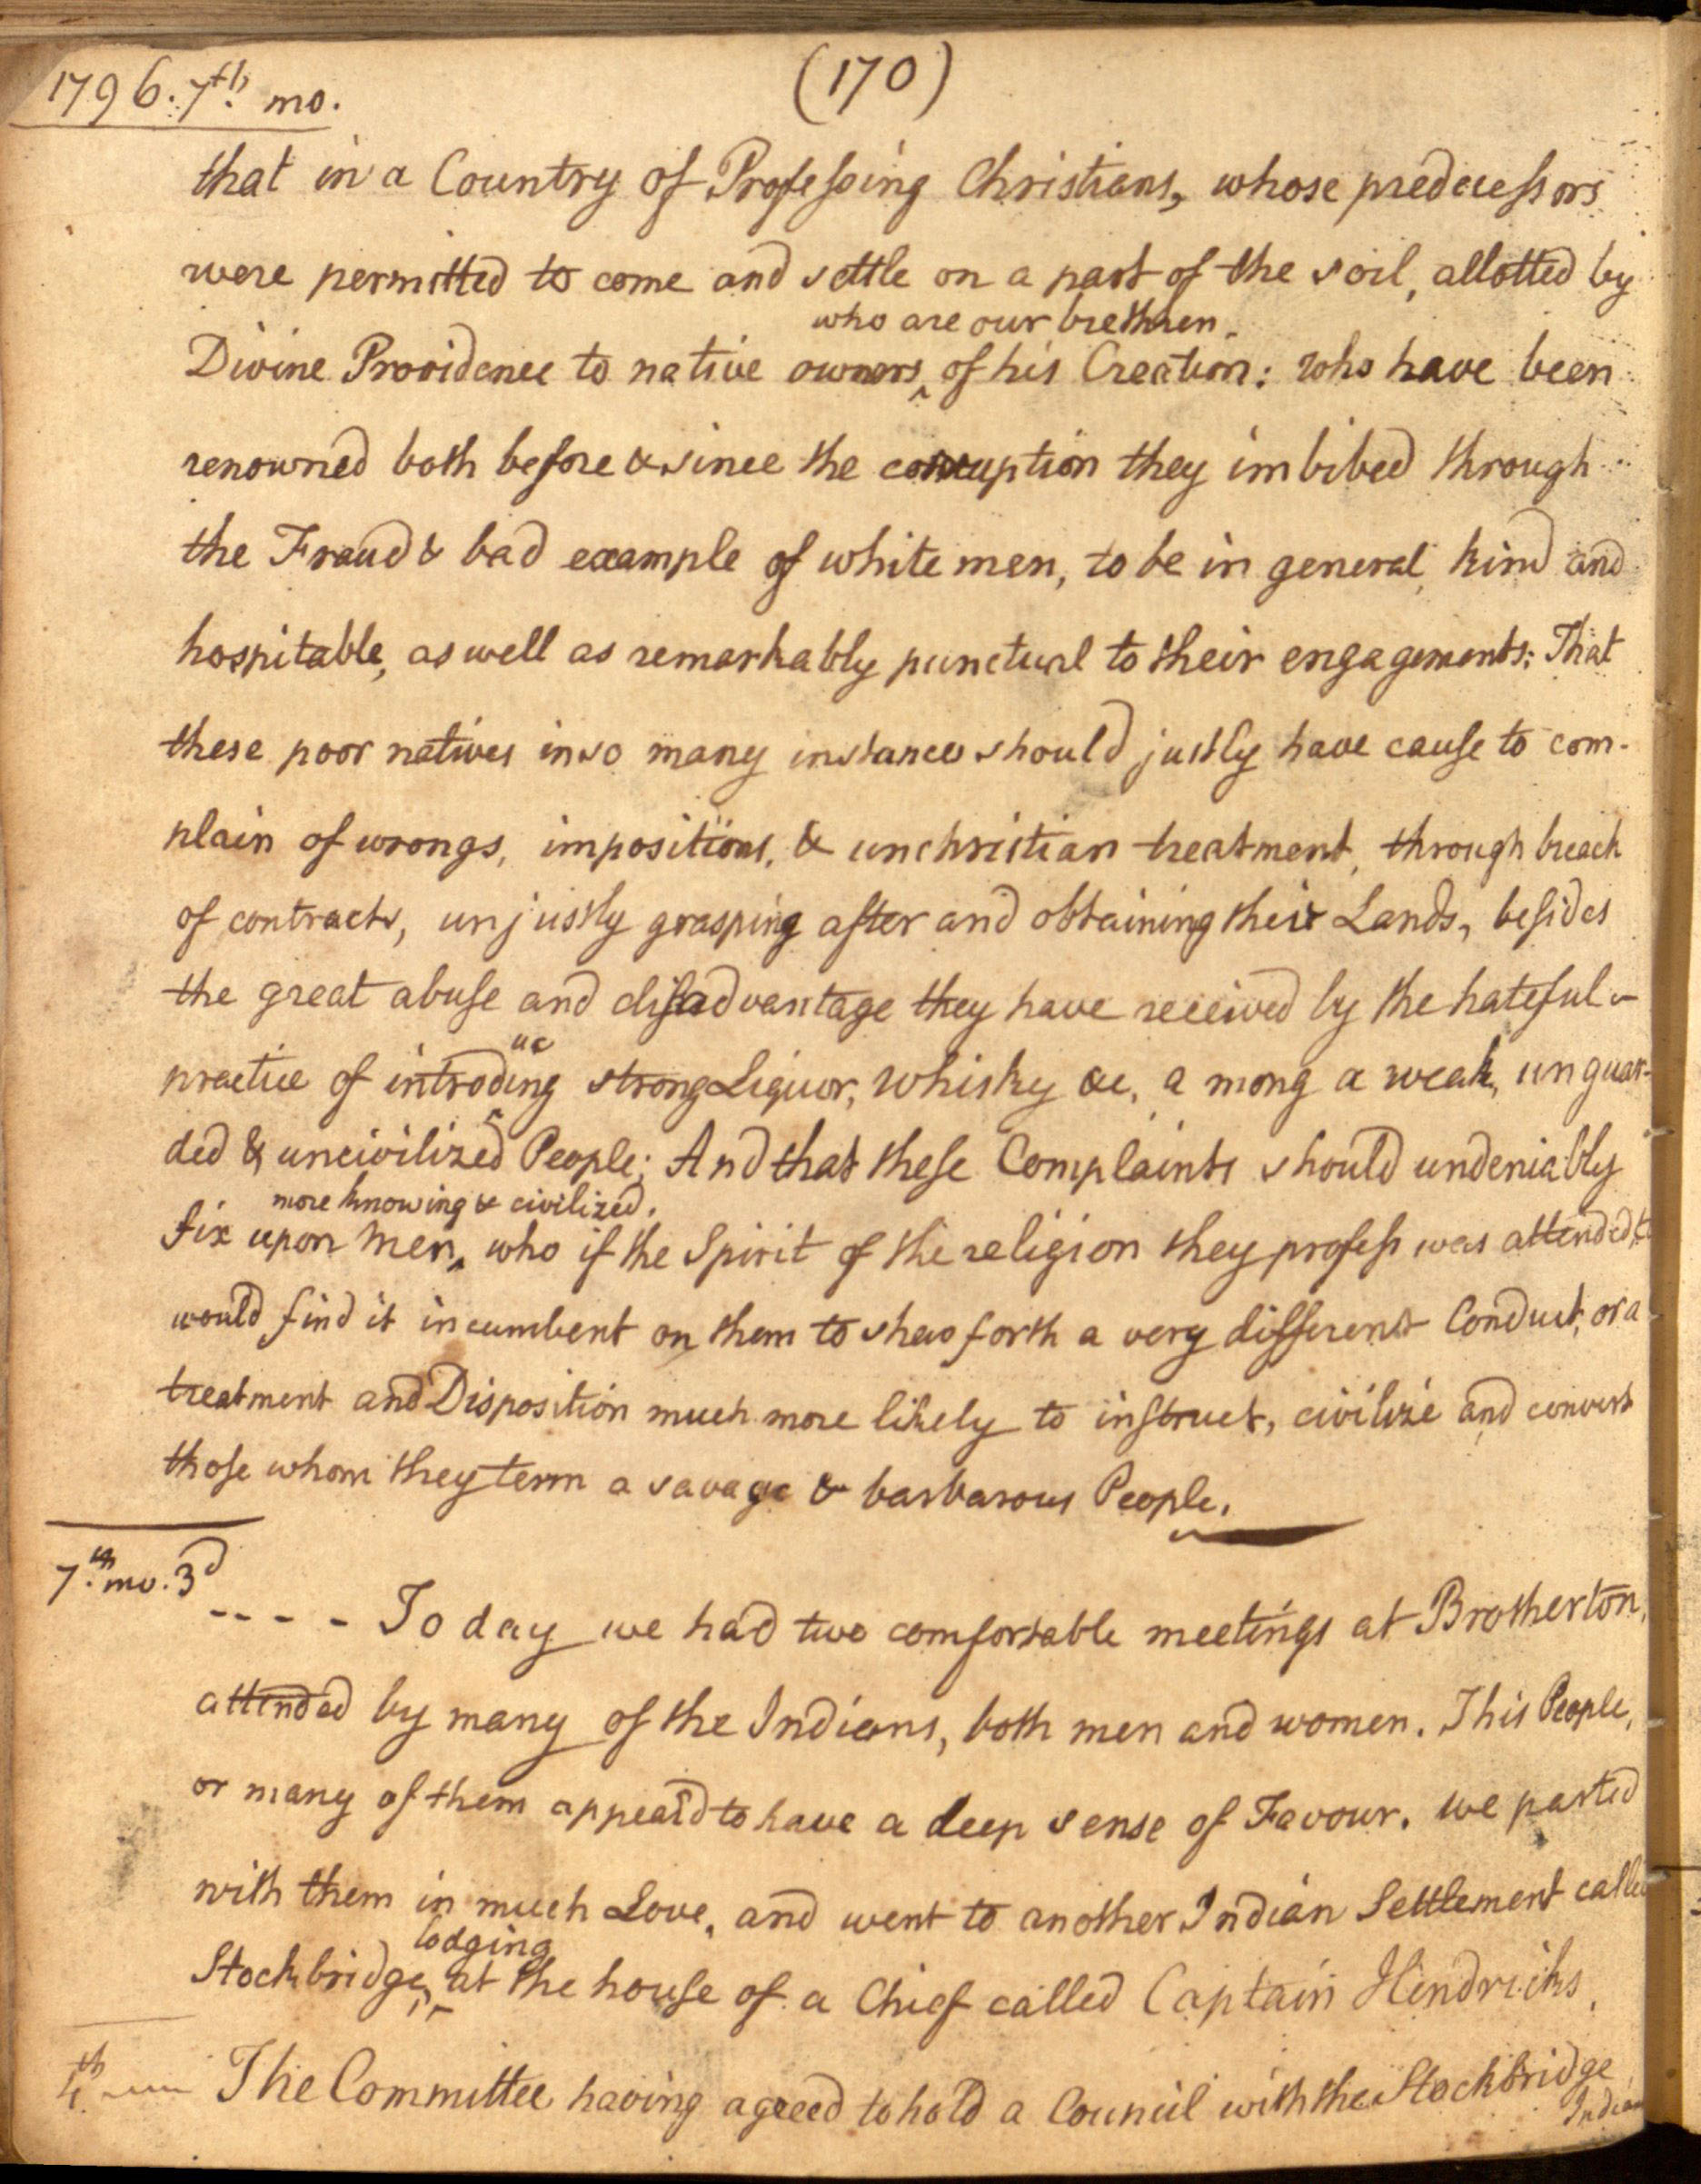 1796. 7th mo.
(170)
that in a Country of Professing Christians, whose predecessors
were permitted to come and settle on a part of the soil, allotted by
who are our brethren
Divine Providence to native owners ‸ of his Creation: who have been
renowned both before & since the corruption they imbibed through
the Fraud & bad example of white men, to be in general kind and
hospitable, as well as remarkably punctual to their engagements: That
these poor natives in so many instances should justly have cause to com-
plain of wrongs, impositions, & unchristian treatment, through breach
of contracts, unjustly grasping after and obtaining their Lands, besides
the great abuse and disadvantage they have received by the hateful
uc
practice of introding strong Liquor, whisky &c, a mong a weak, unguar-
ded & uncivilized People; And that these Complaints should undeniably
more knowing & civilized.
fix upon men ‸ who if the Spirit of the religion they profess was attended to
would find it incumbent on them to shew forth a very different Conduct, or a
treatment and Disposition much more likely to instruct, civilize and convert
those whom they term a savage & barbarous People.
7th mo. 3d
---- To day we had two comfortable meetings at Brotherton,
attended by many of the Indians, both men and women. This People,
or many of them appear'd to have a deep sense of Favour. we parted
with them in much Love, and went to another Indian Settlement called
lodging
Stockbridge, ‸ at the house of a Chief called Captain Hendricks.
4th The Committee having agreed to hold a Council with the Stockbridge
Indian